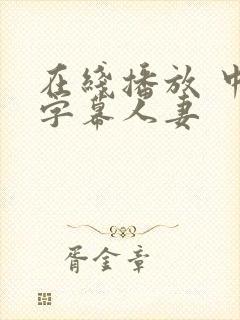 在綫播放 中
字幕人妻
胥金章